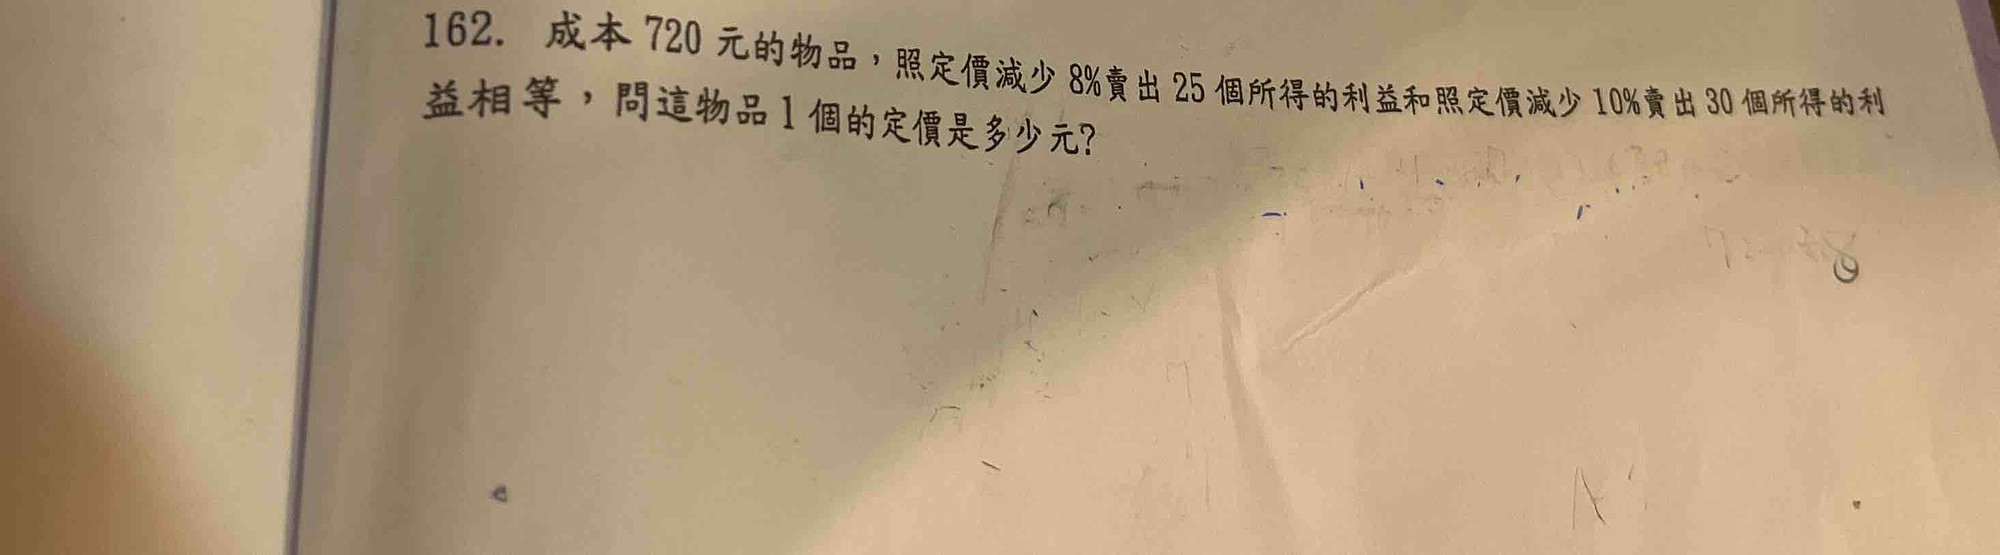 162. 成本 720 元的物品，照定價減少 8%賣出 25 個所得的利益和照定價減少 10%賣出 30 個所得的利
益相等，問這物品 1 個的定價是多少元?